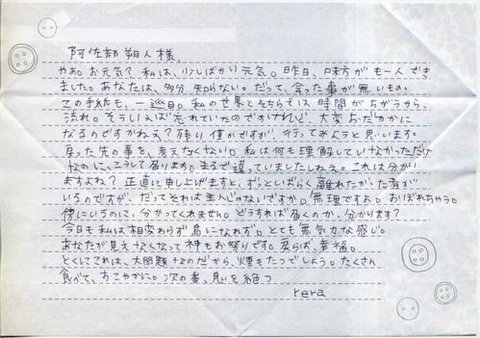 阿佐都朔人様、
やあ。お元気？私は、少しばかり元気。昨日、味方が一人でき
ました。あなたは、多分知らない。だって、会った事が無いもの。
この手紙も、一巡目。私の世界とそちらでは時間がちがうから、
流れ。そういえば忘れていたのですけれど、大変おっだかかに
なるのですかねえ？残り僅かですが、行ってみようと思います。
戻った先の事を、考えたくない。私は何も理解していなかっただけ
なのに、こうして居ります。まるで違っていましたしねえ。これは分かい
ますよね？正直に申し上げますと、ずっとしばらく離れたが た方が
いいのですが、だってそれは主人じゃないですか。無理ですよ。おぼれちゃう。
傍にいるのに、分かってくれません。どうすれば届くのか、分かります？
今日も私は相変わらず鳥になれず。とても無気力な感じ。
あなたが見えなくなって神もお祭りです。柔らぱ、幸福。
とくしてこれは、大問題なのだから、煙もたつでしょう。たくさん
食べて、すこやかに。次の春、息を
rera